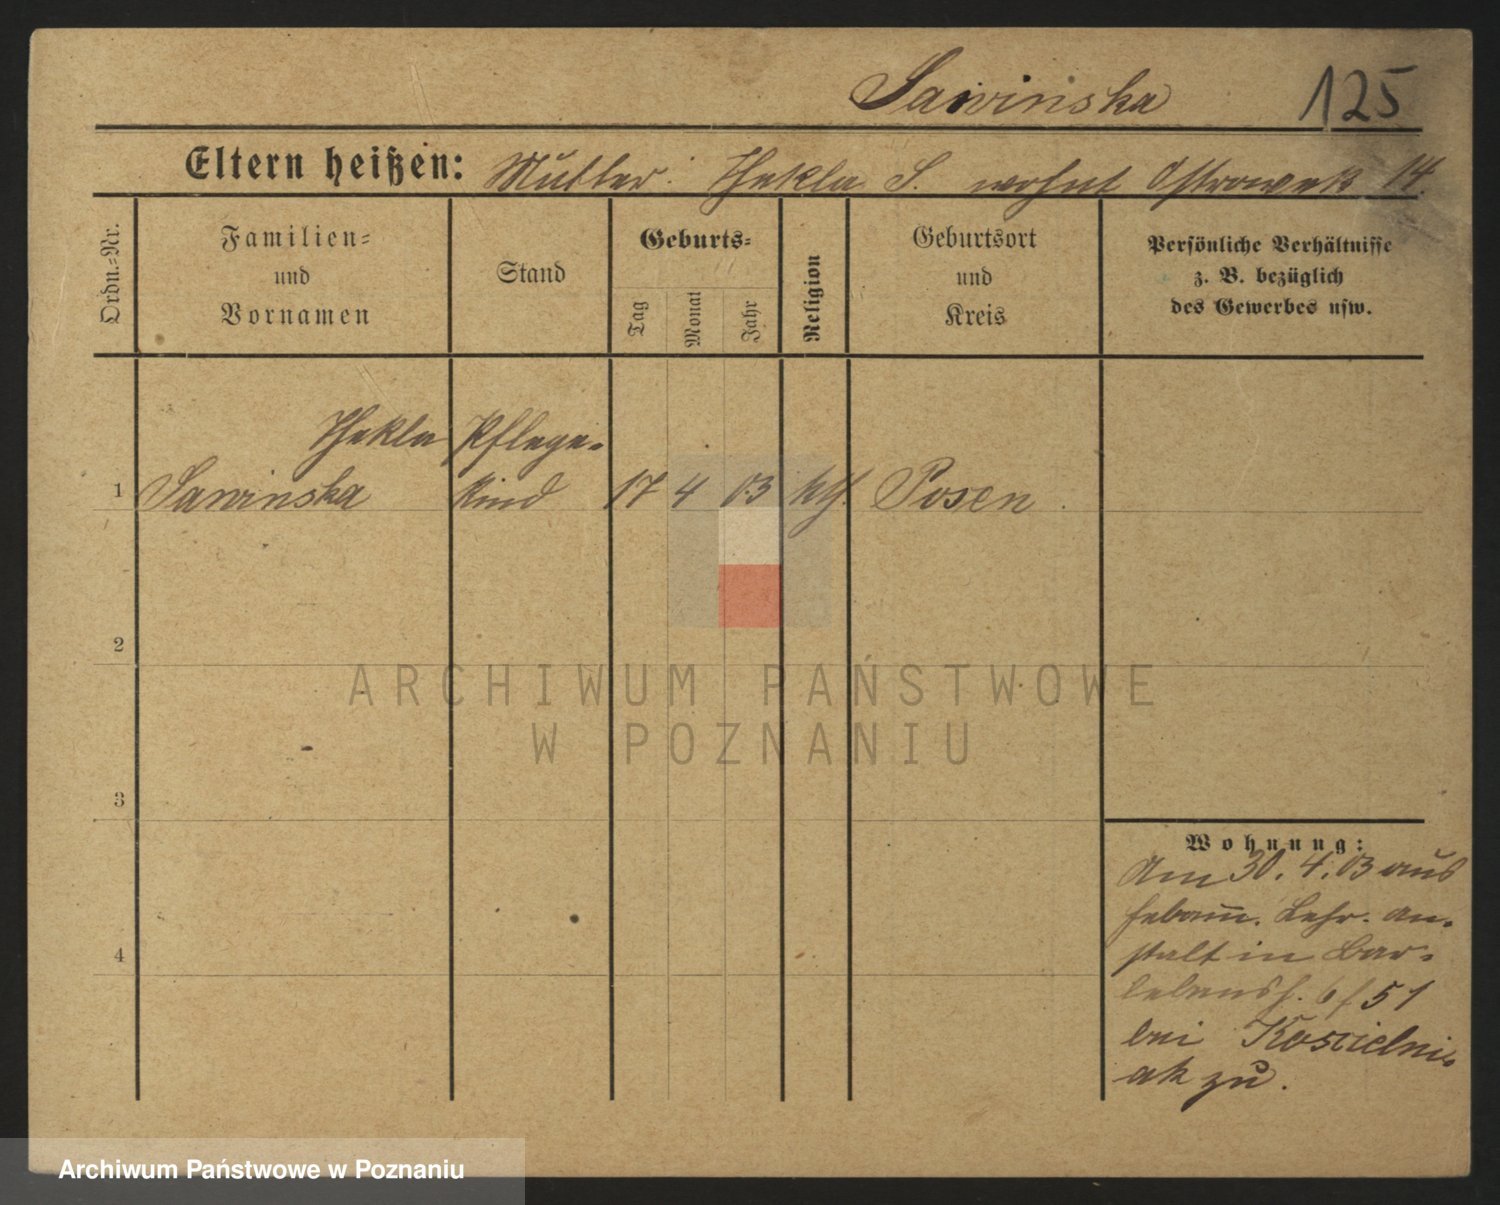 Sawinska 125
Eltern heißen: Mutter. Thekla S. wohnt Ostrowek 14.
Ordn.=Nr.
Familien=
und
Vornamen
Stand
Geburts=
Tag
Monat
Jahr
Religion
Geburtsort
und
Kreis
Persönliche Verhältnisse
z. B. bezüglich
des Gewerbes usw.
Thekla Pflege-
1 Sawinska kind 17 4 03 kth. Posen.
2
3
4
Wohnung:
Am 30. 4. 03 aus
Hebamm. Lehr. An-
stalt in Bar-
lebensh. 51
bei Koscielni-
ak zu.
ARCHIWUM PAŃSTWOWE
W POZNANIU
Archiwum Państwowe w Poznaniu